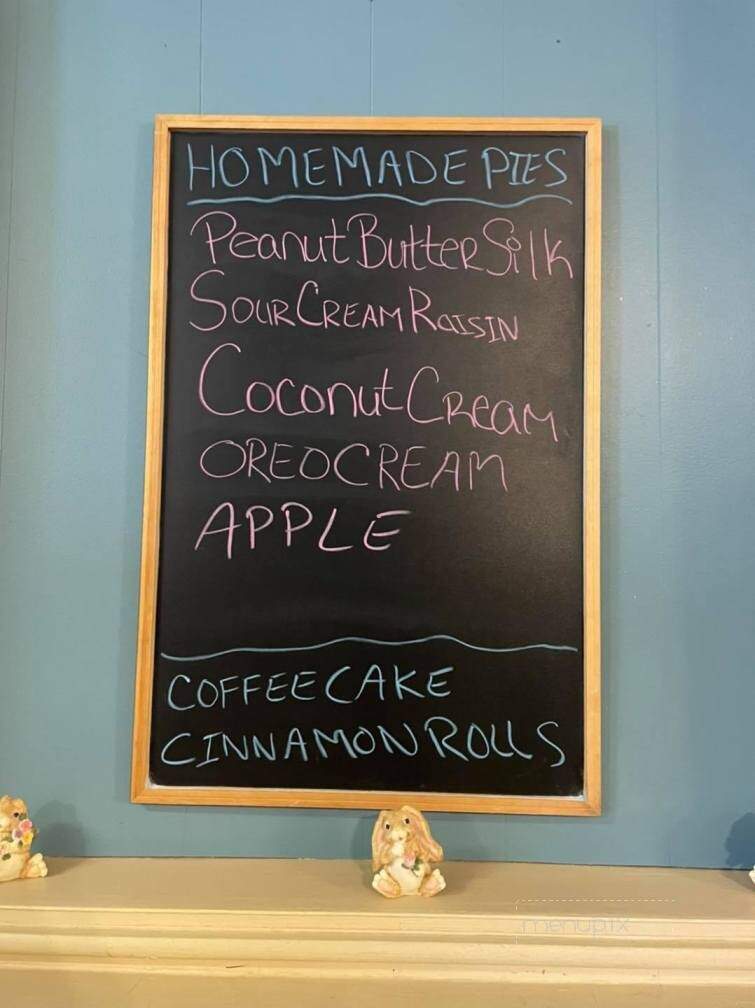 HOMEMADE PIES
Peanut Butter Silk
Sour Cream Raisin
Coconut Cream
OREO CREAM
APPLE
COFFEE CAKE
CINNAMON ROLLS
menupix